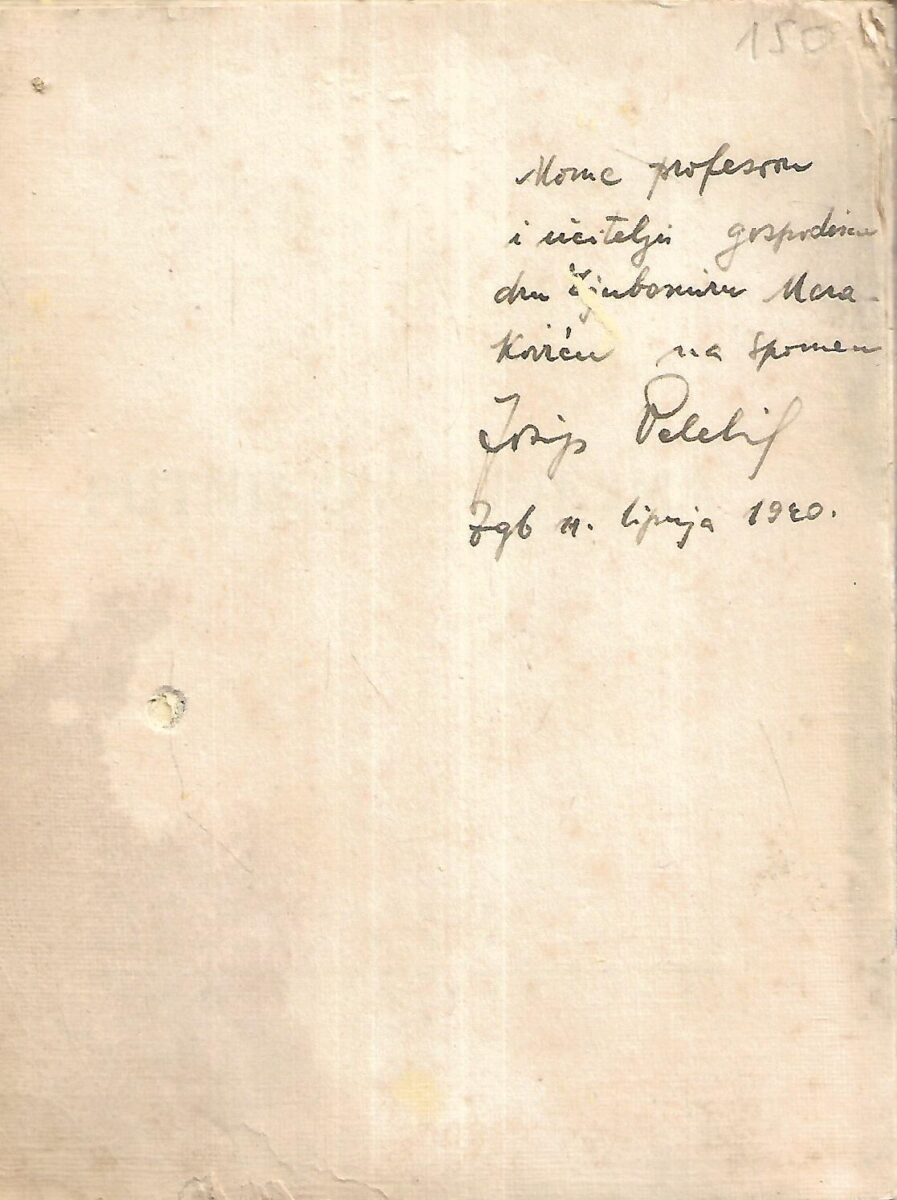 150
Mome profesoru
i učitelju gospodinu
dru Ljubomiru Mara-
koviću na spomen
Josip
Zgb 11. lipnja 1940.